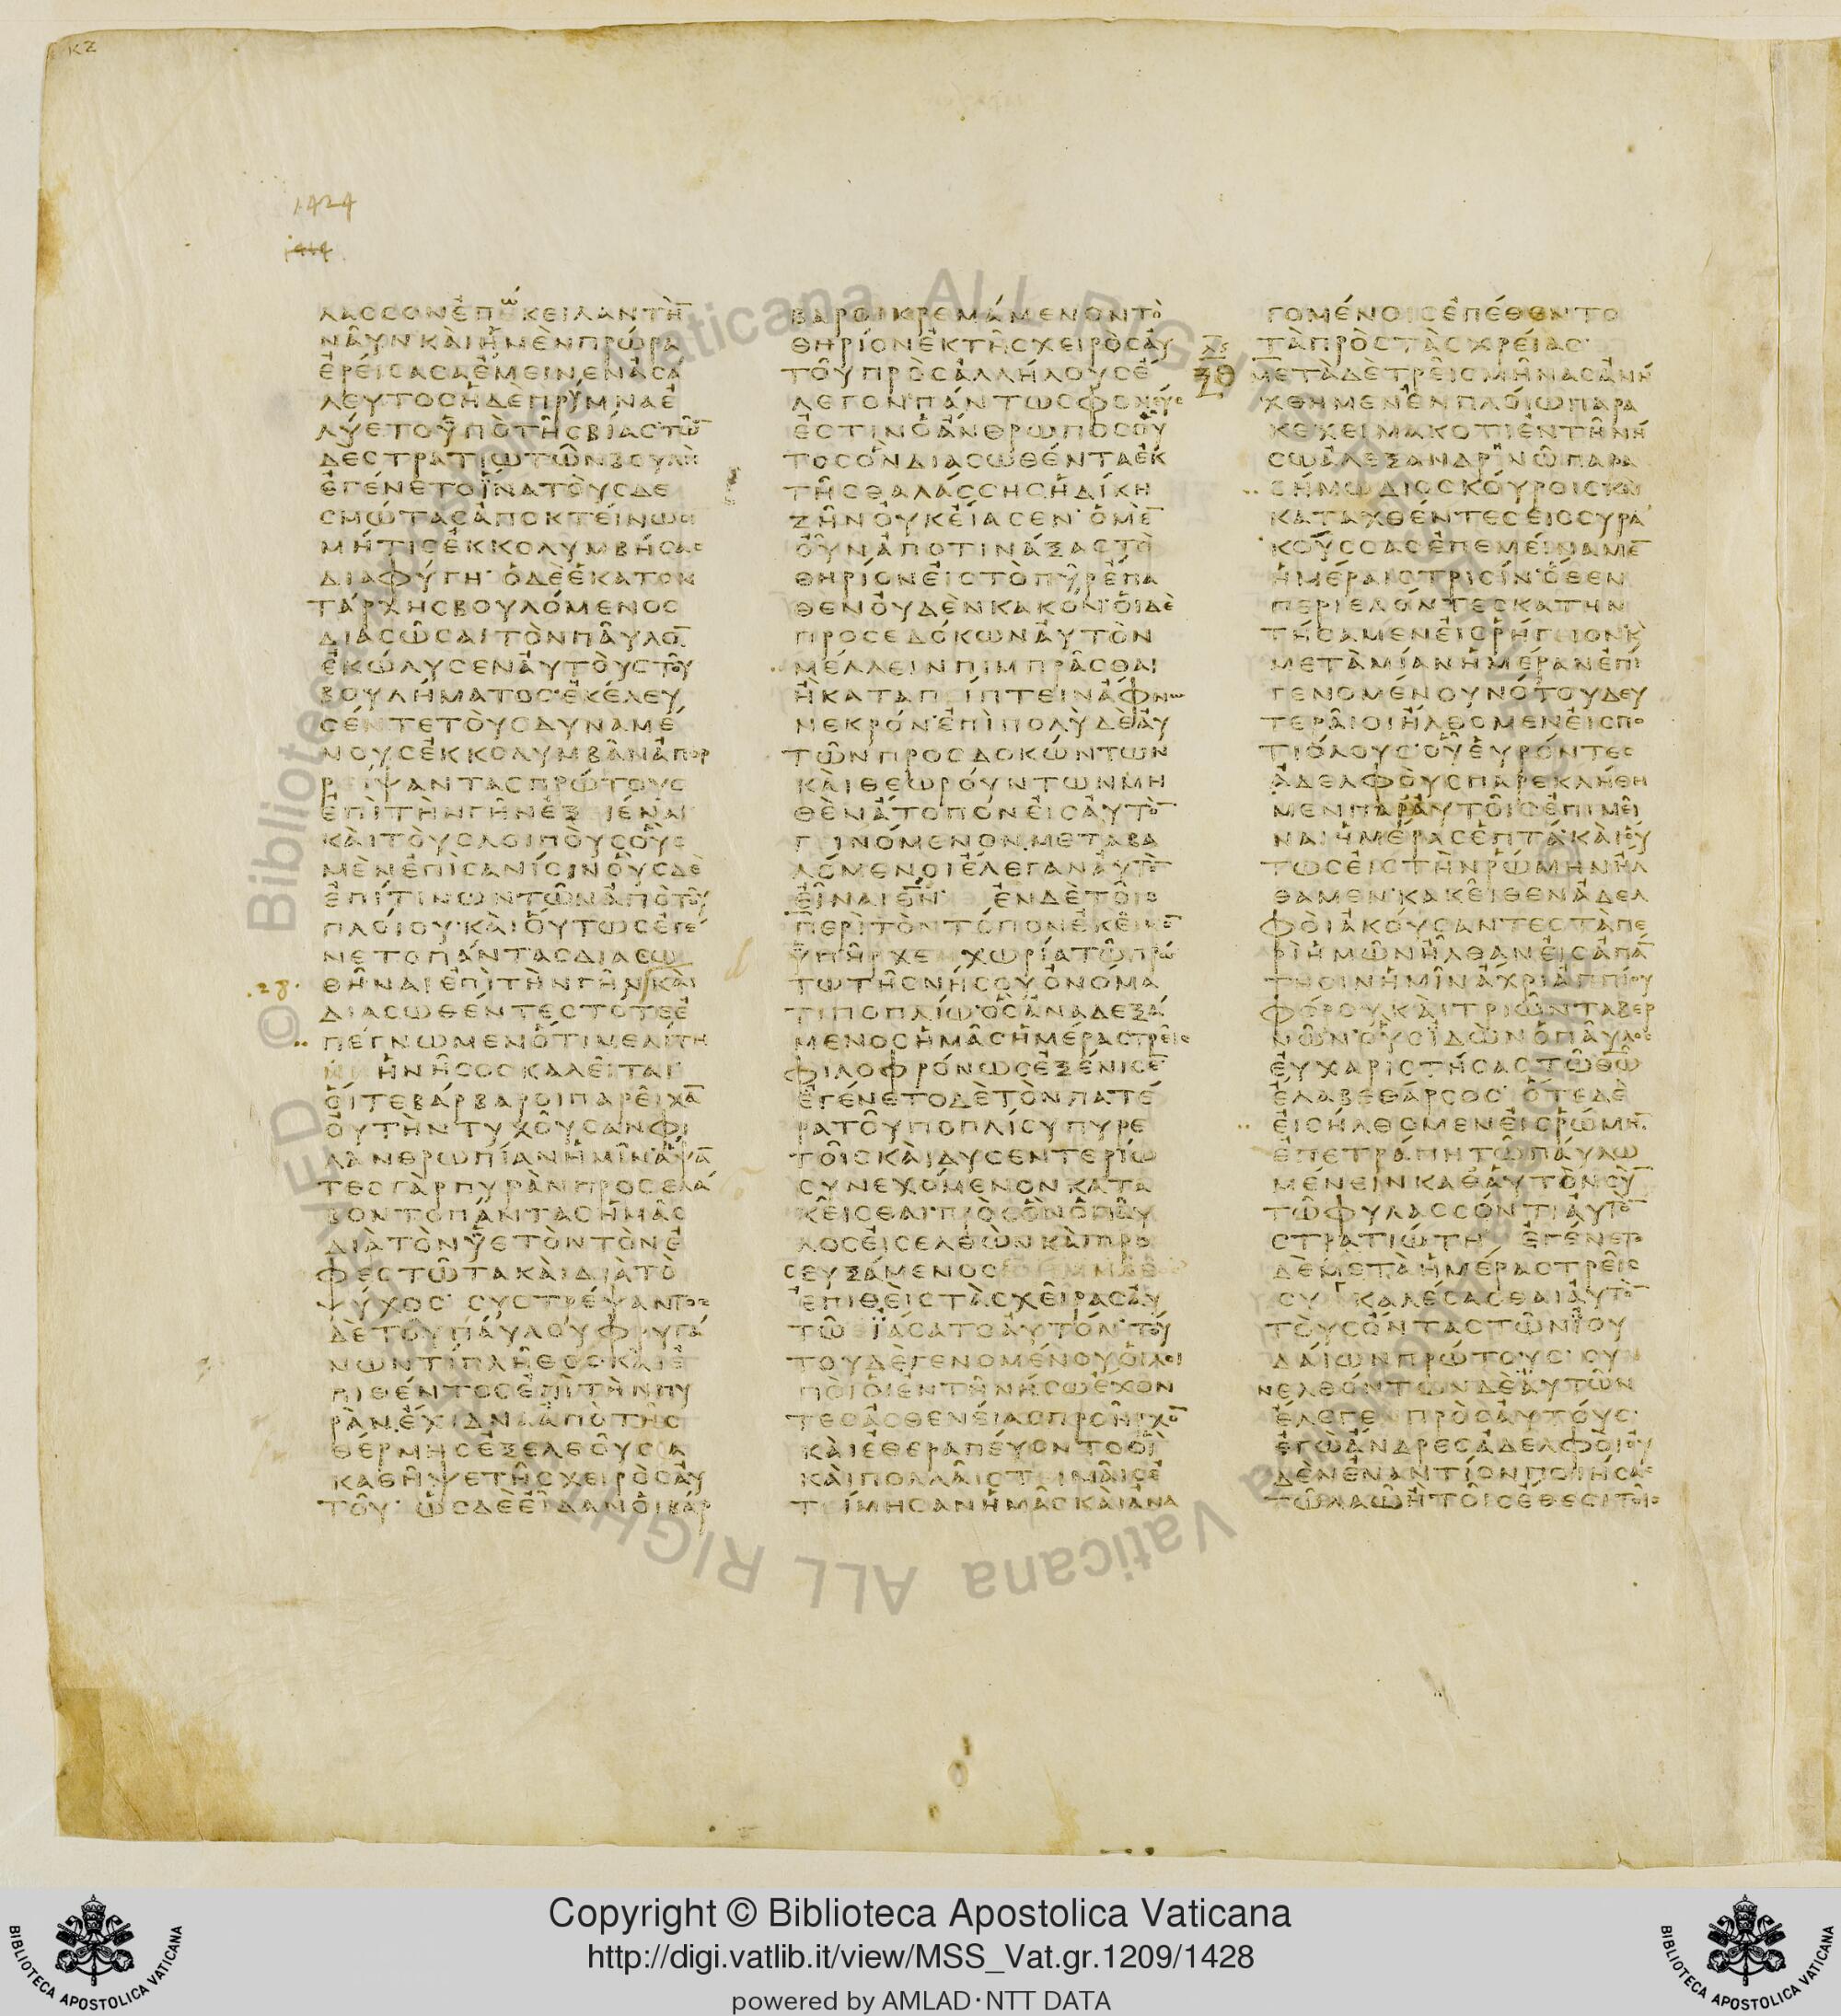 ΚΖ
1424
ΛΑϹϹΟΝΕΠΩΚΕΙΛΑΝΤΗ̅
ΝΑΥΝ·ΚΑΙΗΜΕΝΠΡΩΡΑ
ΕΡΕΙϹΑϹΑΕΜΕΙΝΕΝΑϹΑ
ΛΕΥΤΟϹΗΔΕΠΡΥΜΝΑΕ
ΛΥΕΤΟΫΠΟΤΗϹΒΙΑϹ·ΤΩ̅
ΔΕϹΤΡΑΤΙΩΤΩΝΒΟΥΛΗ
ΕΓΕΝΕΤΟΪΝΑΤΟΥϹΔΕ
ϹΜΩΤΑϹΑΠΟΚΤΕΙΝΩϹΙ
ΜΗΤΙϹΕΚΚΟΛΥΜΒΗϹΑϹ
ΔΙΑΦΥΓΗ· ΟΔΕΕΚΑΤΟΝ
ΤΑΡΧΗϹΒΟΥΛΟΜΕΝΟϹ
ΔΙΑϹΩϹΑΙΤΟΝΠΑΥΛΟ̅
ΕΚΩΛΥϹΕΝΑΥΤΟΥϹΤΟΥ
ΒΟΥΛΗΜΑΤΟϹ·ΕΚΕΛΕΥ
ϹΕΝΤΕΤΟΥϹΔΥΝΑΜΕ
ΝΟΥϹΕΚΚΟΛΥΜΒΑΝΑΠΟΡ
ΡΙΨΑΝΤΑϹΠΡΩΤΟΥϹ
ΕΠΙΤΗΝΓΗΝΕΞΙΕΝΑΙ
ΚΑΙΤΟΥϹΛΟΙΠΟΥϹΟΥϹ
ΜΕΝΕΠΙϹΑΝΙϹΙΝΟΥϹΔΕ
ΕΠΙΤΙΝΩΝΤΩΝΑΠΟΤΟΥ
ΠΛΟΙΟΥ·ΚΑΙΟΥΤΩϹΕΓΕ
ΝΕΤΟΠΑΝΤΑϹΔΙΑϹΩ
ΘΗΝΑΙΕΠΙΤΗΝΓΗΝΚΑΙ
ΔΙΑϹΩΘΕΝΤΕϹΤΟΤΕΕ
ΠΕΓΝΩΜΕΝΟΤΙΜΕΛΙΤΗ
ΗΝΗϹΟϹΚΑΛΕΙΤΑΙ·
ΟΙΤΕΒΑΡΒΑΡΟΙΠΑΡΕΙΧΑ̅
ΟΥΤΗΝΤΥΧΟΥϹΑΝΦΙ
ΛΑΝΘΡΩΠΙΑΝΗΜΙΝ·ΑΨΑ̅
ΤΕϹΓΑΡΠΥΡΑΝΠΡΟϹΕΛΑ
ΒΟΝΤΟΠΑΝΤΑϹΗΜΑϹ
ΔΙΑΤΟΝΫΕΤΟΝΤΟΝΕ
ΦΕϹΤΩΤΑΚΑΙΔΙΑΤΟ
ΨΥΧΟϹ· ϹΥϹΤΡΕΨΑΝΤΟϹ
ΔΕΤΟΥΠΑΥΛΟΥΦΡΥΓΑ
ΝΩΝΤΙΠΛΗΘΟϹΚΑΙΕ
ΠΙΘΕΝΤΟϹΕΠΙΤΗΝΠΥ
ΡΑΝ.ΕΧΙΔΝΑΑΠΟΤΗϹ
ΘΕΡΜΗϹΕΞΕΛΘΟΥϹΑ
ΚΑΘΗΨΕΤΗϹΧΕΙΡΟϹΑΥ
ΤΟΥ· ΩϹΔΕΕΙΔΑΝΟΙΒΑΡ
ΒΑΡΟΙΚΡΕΜΑΜΕΝΟΝΤΟ
ΘΗΡΙΟΝΕΚΤΗϹΧΕΙΡΟϹΑΥ
ΤΟΥΠΡΟϹΑΛΛΗΛΟΥϹΕ
ΛΕΓΟΝ·ΠΑΝΤΩϹΦΟΝΕΥϹ
ΕϹΤΙΝΟΑΝΘΡΩΠΟϹΟΥ
ΤΟϹΟΝΔΙΑϹΩΘΕΝΤΑΕΚ
ΤΗϹΘΑΛΑϹϹΗϹΗΔΙΚΗ
ΖΗΝΟΥΚΕΙΑϹΕΝ· ΟΜΕ̅
ΟΥΝΑΠΟΤΙΝΑΞΑϹΤΟ
ΘΗΡΙΟΝΕΙϹΤΟΠΥΡΕΠΑ
ΘΕΝΟΥΔΕΝΚΑΚΟΝ·ΟΙΔΕ
ΠΡΟϹΕΔΟΚΩΝΑΥΤΟΝ
ΜΕΛΛΕΙΝΠΙΜΠΡΑϹΘΑΙ
ΗΚΑΤΑΠΙΠΤΕΙΝΑΦΝΩ
ΝΕΚΡΟΝ·ΕΠΙΠΟΛΥΔΕΑΥ
ΤΩΝΠΡΟϹΔΟΚΩΝΤΩΝ
ΚΑΙΘΕΩΡΟΥΝΤΩΝΜΗ
ΘΕΝΑΤΟΠΟΝΕΙϹΑΥΤΟ̅
ΓΙΝΟΜΕΝΟΝ.ΜΕΤΑΒΑ
ΛΟΜΕΝΟΙΕΛΕΓΑΝΑΥΤΟ̅
ΕΙΝΑΙΘ̅Ν̅· ΕΝΔΕΤΟΙϹ
ΠΕΡΙΤΟΝΤΟΠΟΝΕΚΕΙΝΟ̅
ΫΠΗΡΧΕΧΩΡΙΑΤΩΠΡΩ
ΤΩΤΗϹΝΗϹΟΥΟΝΟΜΑ
ΤΙΠΟΠΛΙΩ·ΟϹΑΝΑΔΕΞΑ
ΜΕΝΟϹΗΜΑϹΗΜΕΡΑϹΤΡΕΙϹ
ΦΙΛΟΦΡΟΝΩϹΕΞΕΝΙϹΕ̅
ΕΓΕΝΕΤΟΔΕΤΟΝΠΑΤΕ
ΡΑΤΟΥΠΟΠΛΙΟΥΠΥΡΕ
ΤΟΙϹΚΑΙΔΥϹΕΝΤΕΡΙΩ
ϹΥΝΕΧΟΜΕΝΟΝΚΑΤΑ
ΚΕΙϹΘΑΙ·ΠΡΟϹΟΝΟΠΑΥ
ΛΟϹΕΙϹΕΛΘΩΝΚΑΙΠΡΟ
ϹΕΥΞΑΜΕΝΟϹ
ΕΠΙΘΕΙϹΤΑϹΧΕΙΡΑϹΑΥ
ΤΩΪΑϹΑΤΟΑΥΤΟΝ·ΤΟΥ
ΤΟΥΔΕΓΕΝΟΜΕΝΟΥΟΙΛΟΙ
ΠΟΙΟΙΕΝΤΗΝΗϹΩΕΧΟΝ
ΤΕϹΑϹΘΕΝΕΙΑϹΠΡΟϹΗΡΧΟ̅
ΚΑΙΕΘΕΡΑΠΕΥΟΝΤΟΟΙ
ΚΑΙΠΟΛΛΑΙϹΤΕΙΜΑΙϹΕ
ΤΕΙΜΗϹΑΝΗΜΑϹΚΑΙΑΝΑ
ΓΟΜΕΝΟΙϹΕΠΕΘΕΝΤΟ
ΤΑΠΡΟϹΤΑϹΧΡΕΙΑϹ·
ΜΕΤΑΔΕΤΡΕΙϹΜΗΝΑϹΑΝΗ
ΧΘΗΜΕΝΕΝΠΛΟΙΩΠΑΡΑ
ΚΕΧΕΙΜΑΚΟΤΙΕΝΤΗΝΗ
ϹΩΑΛΕΞΑΝΔΡΙΝΩΠΑΡΑ
ϹΗΜΩΔΙΟϹΚΟΥΡΟΙϹΚΑΙ
ΚΑΤΑΧΘΕΝΤΕϹΕΙϹϹΥΡΑ
ΚΟΥϹϹΑϹΕΠΕΜΕΙΝΑΜΕ̅
ΗΜΕΡΑΙϹΤΡΙϹΙΝ·ΟΘΕΝ
ΠΕΡΙΕΛΟΝΤΕϹΚΑΤΗΝ
ΤΗϹΑΜΕΝΕΙϹΡΗΓΙΟΝΚ
ΜΕΤΑΜΙΑΝΗΜΕΡΑΝΕΠΙ
ΓΕΝΟΜΕΝΟΥΝΟΤΟΥΔΕΥ
ΤΕΡΑΙΟΙΗΛΘΟΜΕΝΕΙϹΠΟ
ΤΙΟΛΟΥϹ·ΟΥΕΥΡΟΝΤΕϹ
ΑΔΕΛΦΟΥϹΠΑΡΕΚΛΗΘΗ
ΜΕΝΠΑΡΑΥΤΟΙϹΕΠΙΜΕΙ
ΝΑΙΗΜΕΡΑϹΕΠΤΑ·ΚΑΙΟΥ
ΤΩϹΕΙϹΤΗΝΡΩΜΗΝΗΛ
ΘΑΜΕΝ·ΚΑΚΕΙΘΕΝΑΔΕΛ
ΦΟΙΑΚΟΥϹΑΝΤΕϹΤΑΠΕ
ΡΙΗΜΩΝΗΛΘΑΝΕΙϹΑΠΑ̅
ΤΗϹΙΝΗΜΙΝΑΧΡΙΑΠΠΙΟΥ
ΦΟΡΟΥΚΑΙΤΡΙΩΝΤΑΒΕΡ
ΝΩΝ·ΟΥϹΙΔΩΝΟΠΑΥΛΟϹ
ΕΥΧΑΡΙϹΤΗϹΑϹΤΩΘ̅Ω̅
ΕΛΑΒΕΘΑΡϹΟϹ· ΟΤΕΔΕ
ΕΙϹΗΛΘΟΜΕΝΕΙϹΡΩΜΗ̅
ΕΠΕΤΡΑΠΗΤΩΠΑΥΛΩ
ΜΕΝΕΙΝΚΑΘΑΥΤΟΝϹΥ̅
ΤΩΦΥΛΑϹϹΟΝΤΙΑΥΤΟ̅
ϹΤΡΑΤΙΩΤΗ ΕΓΕΝΕΤΟ
ΔΕΜΕΤΑΗΜΕΡΑϹΤΡΕΙϹ
ϹΥΓΚΑΛΕϹΑϹΘΑΙΑΥΤΟ̅
ΤΟΥϹΟΝΤΑϹΤΩΝΪΟΥ
ΔΑΙΩΝΠΡΩΤΟΥϹ· ϹΥ
ΝΕΛΘΟΝΤΩΝΔΕΑΥΤΩΝ
ΕΛΕΓΕΠΡΟϹΑΥΤΟΥϹ·
ΕΓΩΑΝΔΡΕϹΑΔΕΛΦΟΙΟΥ
ΔΕΝΕΝΑΝΤΙΟΝΠΟΙΗϹΑϹ
ΤΩΛΑΩΗΤΟΙϹΕΘΕϹΙΤΟΙϹ
Copyright © Biblioteca Apostolica Vaticana
http://digi.vatlib.it/view/MSS_Vat.gr.1209/1428
powered by AMLAD·NTT DATA
BIBLIOTECA APOSTOLICA VATICANA
BIBLIOTECA APOSTOLICA VATICANA